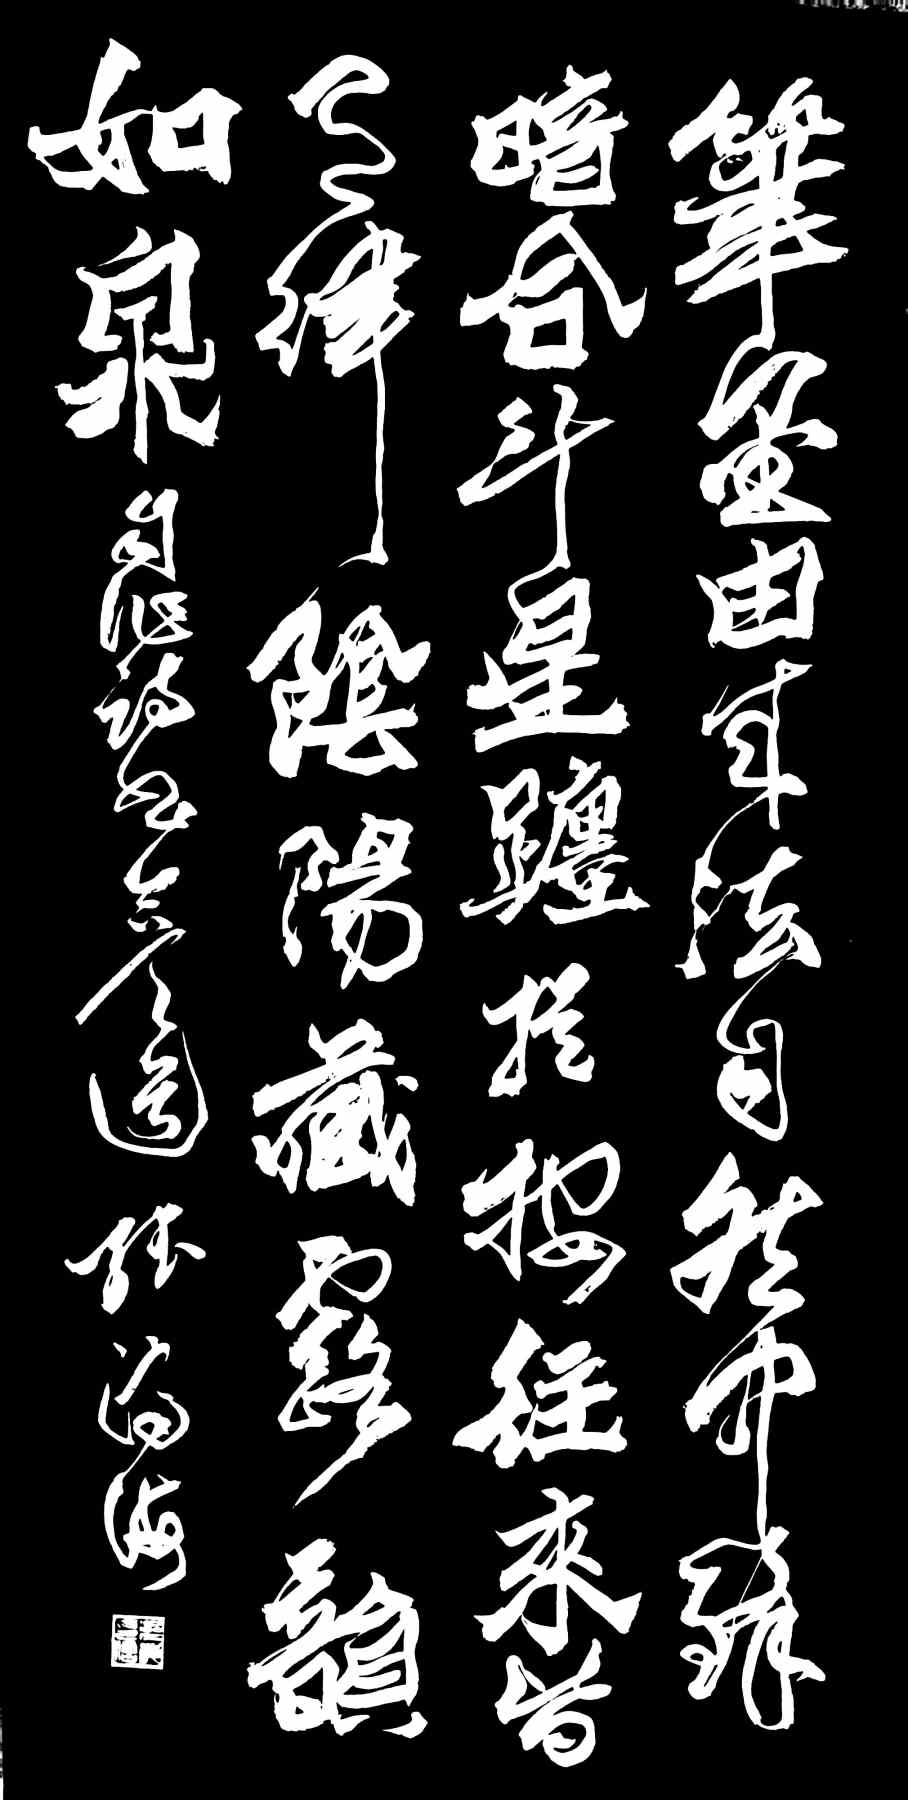 筆墨由來法自然中鋒
暗合斗星躔提按往來皆
有律陰陽藏露韻
如泉
自作詩書
張 海